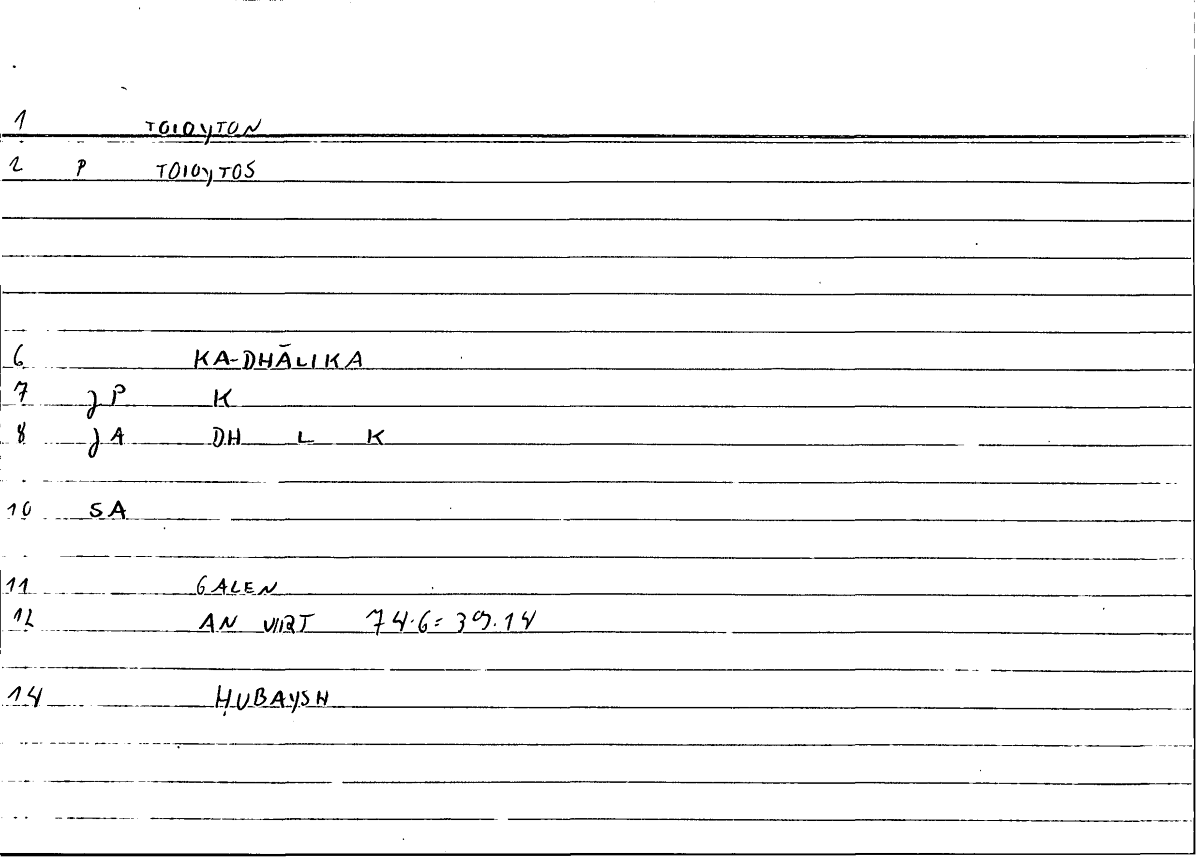 1 TOIOYTON
2 P TOIOYTOS
6 KA-DHĀLIKA
7 JP K
8 JA DH L K
10 SA
11 GALEN
12 AN VIRT 74.6=39.14
14 ḤUBAYSH